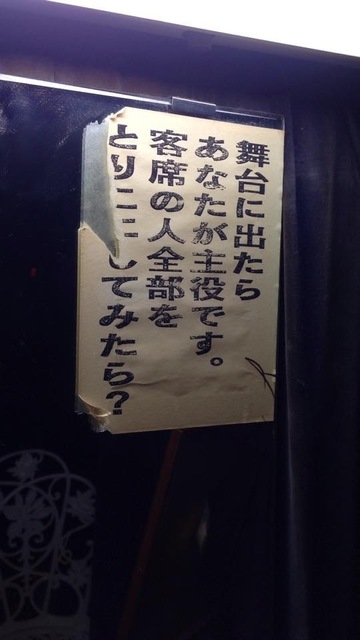 舞台に出たら
あなたが主役です。
客席の人全部を
とりこにしてみたら？